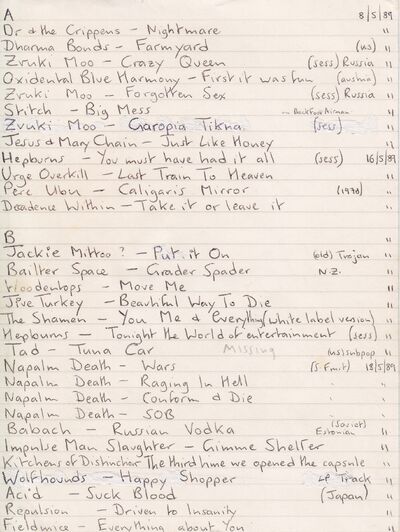 A 8/5/89
Dr & the Crippens - Nightmare "
Dharma Bonds - Farmyard (US) "
Zvuki Moo - Crazy Queen (sess) Russia "
Oxidental Blue Harmony - First it was fun (austria) "
Zvuki Moo - Forgotten Sex (sess) Russia "
Stitch - Big Mess "
Zvuki Moo - Garopia Tikna (sess) "
Jesus & Mary Chain - Just Like Honey "
Hepburns - You must have had it all (sess) 16/5/89
Urge Overkill - Last Train To Heaven "
Pere Ubu - Caligaris Mirror (1978) "
Decadence Within - Take it or leave it "
B
Jackie Mittoo? - Put it On (old) Trojan "
Bailter Space - Grader Spader N.Z. "
Woodentops - Move Me "
Jive Turkey - Beautiful Way To Die "
The Shamen - You Me & Everything (white label version) "
Hepburns - Tonight the World of entertainment (sess) "
Tad - Tuna Car Missing (US) subpop "
Napalm Death - Wars 18/5/89
Napalm Death - Raging In Hell " "
Napalm Death - Conform & Die " "
Napalm Death - SOB " "
Babach - Russian Vodka (Soviet) Estonian "
Impulse Man Slaughter - Gimme Shelter "
Kitchens of Distinction The third time we opened the capsule "
Wolfhounds - Happy Shopper LP Track "
Aci'd - Suck Blood (Japan) "
Repulsion - Driven to Insanity "
Fieldmice - Everything about You "